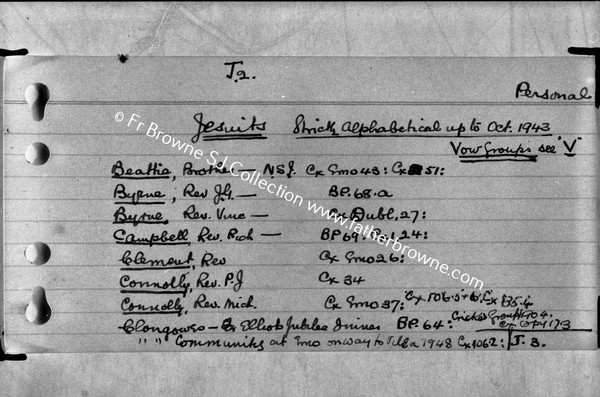 J2.
Personal
Jesuits Strictly Alphabetical up to Oct. 1943
Vow Groups see "V"
Beattie, Brother — NSJ. Cx Emo 43: Cx 51:
Byrne, Rev J.G. — BP. 68.a
Byrne, Rev. Vinc — Cx Dubl, 27:
Campbell, Rev. Rich — BP 69: 24:
Clement, Rev Cx Emo 26:
Connolly, Rev. P.J Cx 34
Connolly, Rev. Mich. Cx Emo 37: Cx 135.4
Clongowes — Jubilee BP. 64: Group
" " Community at Emo on way to 1948 Cx 1062: J. 3.
© Fr Browne SJ Collection www.fatherbrowne.com